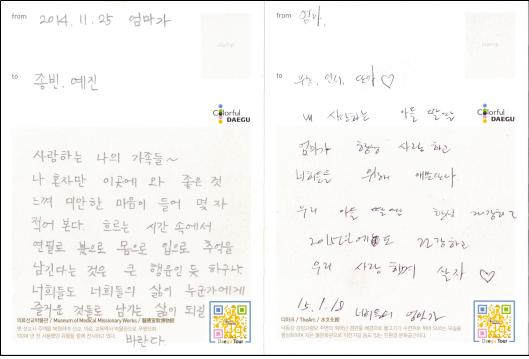 from 2014. 11. 25 엄마가
stamp
to
종빈. 예진
Colorful
DAEGU
사랑하는 나의 가족들~
나 혼자만 이곳에 와 좋은 것
느껴 미안한 마음이 들어 몇 자
적어 본다. 흐르는 시간 속에서
연필로 붓으로 몸으로 입으로 추억을
남긴다는 것은 큰 행운인 듯 하구나.
너희들도 너희들의 삶이 누군가에게
즐거운 것들로 남기는 삶이 되길
바란다.
의료선교박물관 / Museum of Medical Missionary Works / 醫療宣敎博物館
Daegu Tour
from 엄마.
stamp
to
♡
Colorful
DAEGU
내 사랑하는 아들 딸들
엄마가 항상 사랑하고
너희들을 위해
우리 아들 딸들 항상 건강하고
2015년에도 건강하고
우리 사랑하며 살자 ♡
15. 1. 18 너희들의 엄마가
디아크 / The Arc / 水文化館
Daegu Tour